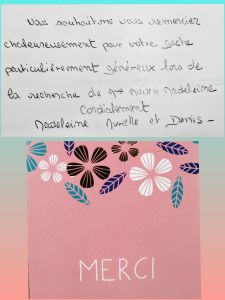 Nous souhaitons vous remercier
chaleureusement pour votre geste
particulièrement généreux lors de
la recherche de Madeleine
Cordialement
Madeleine et Denis -
MERCI